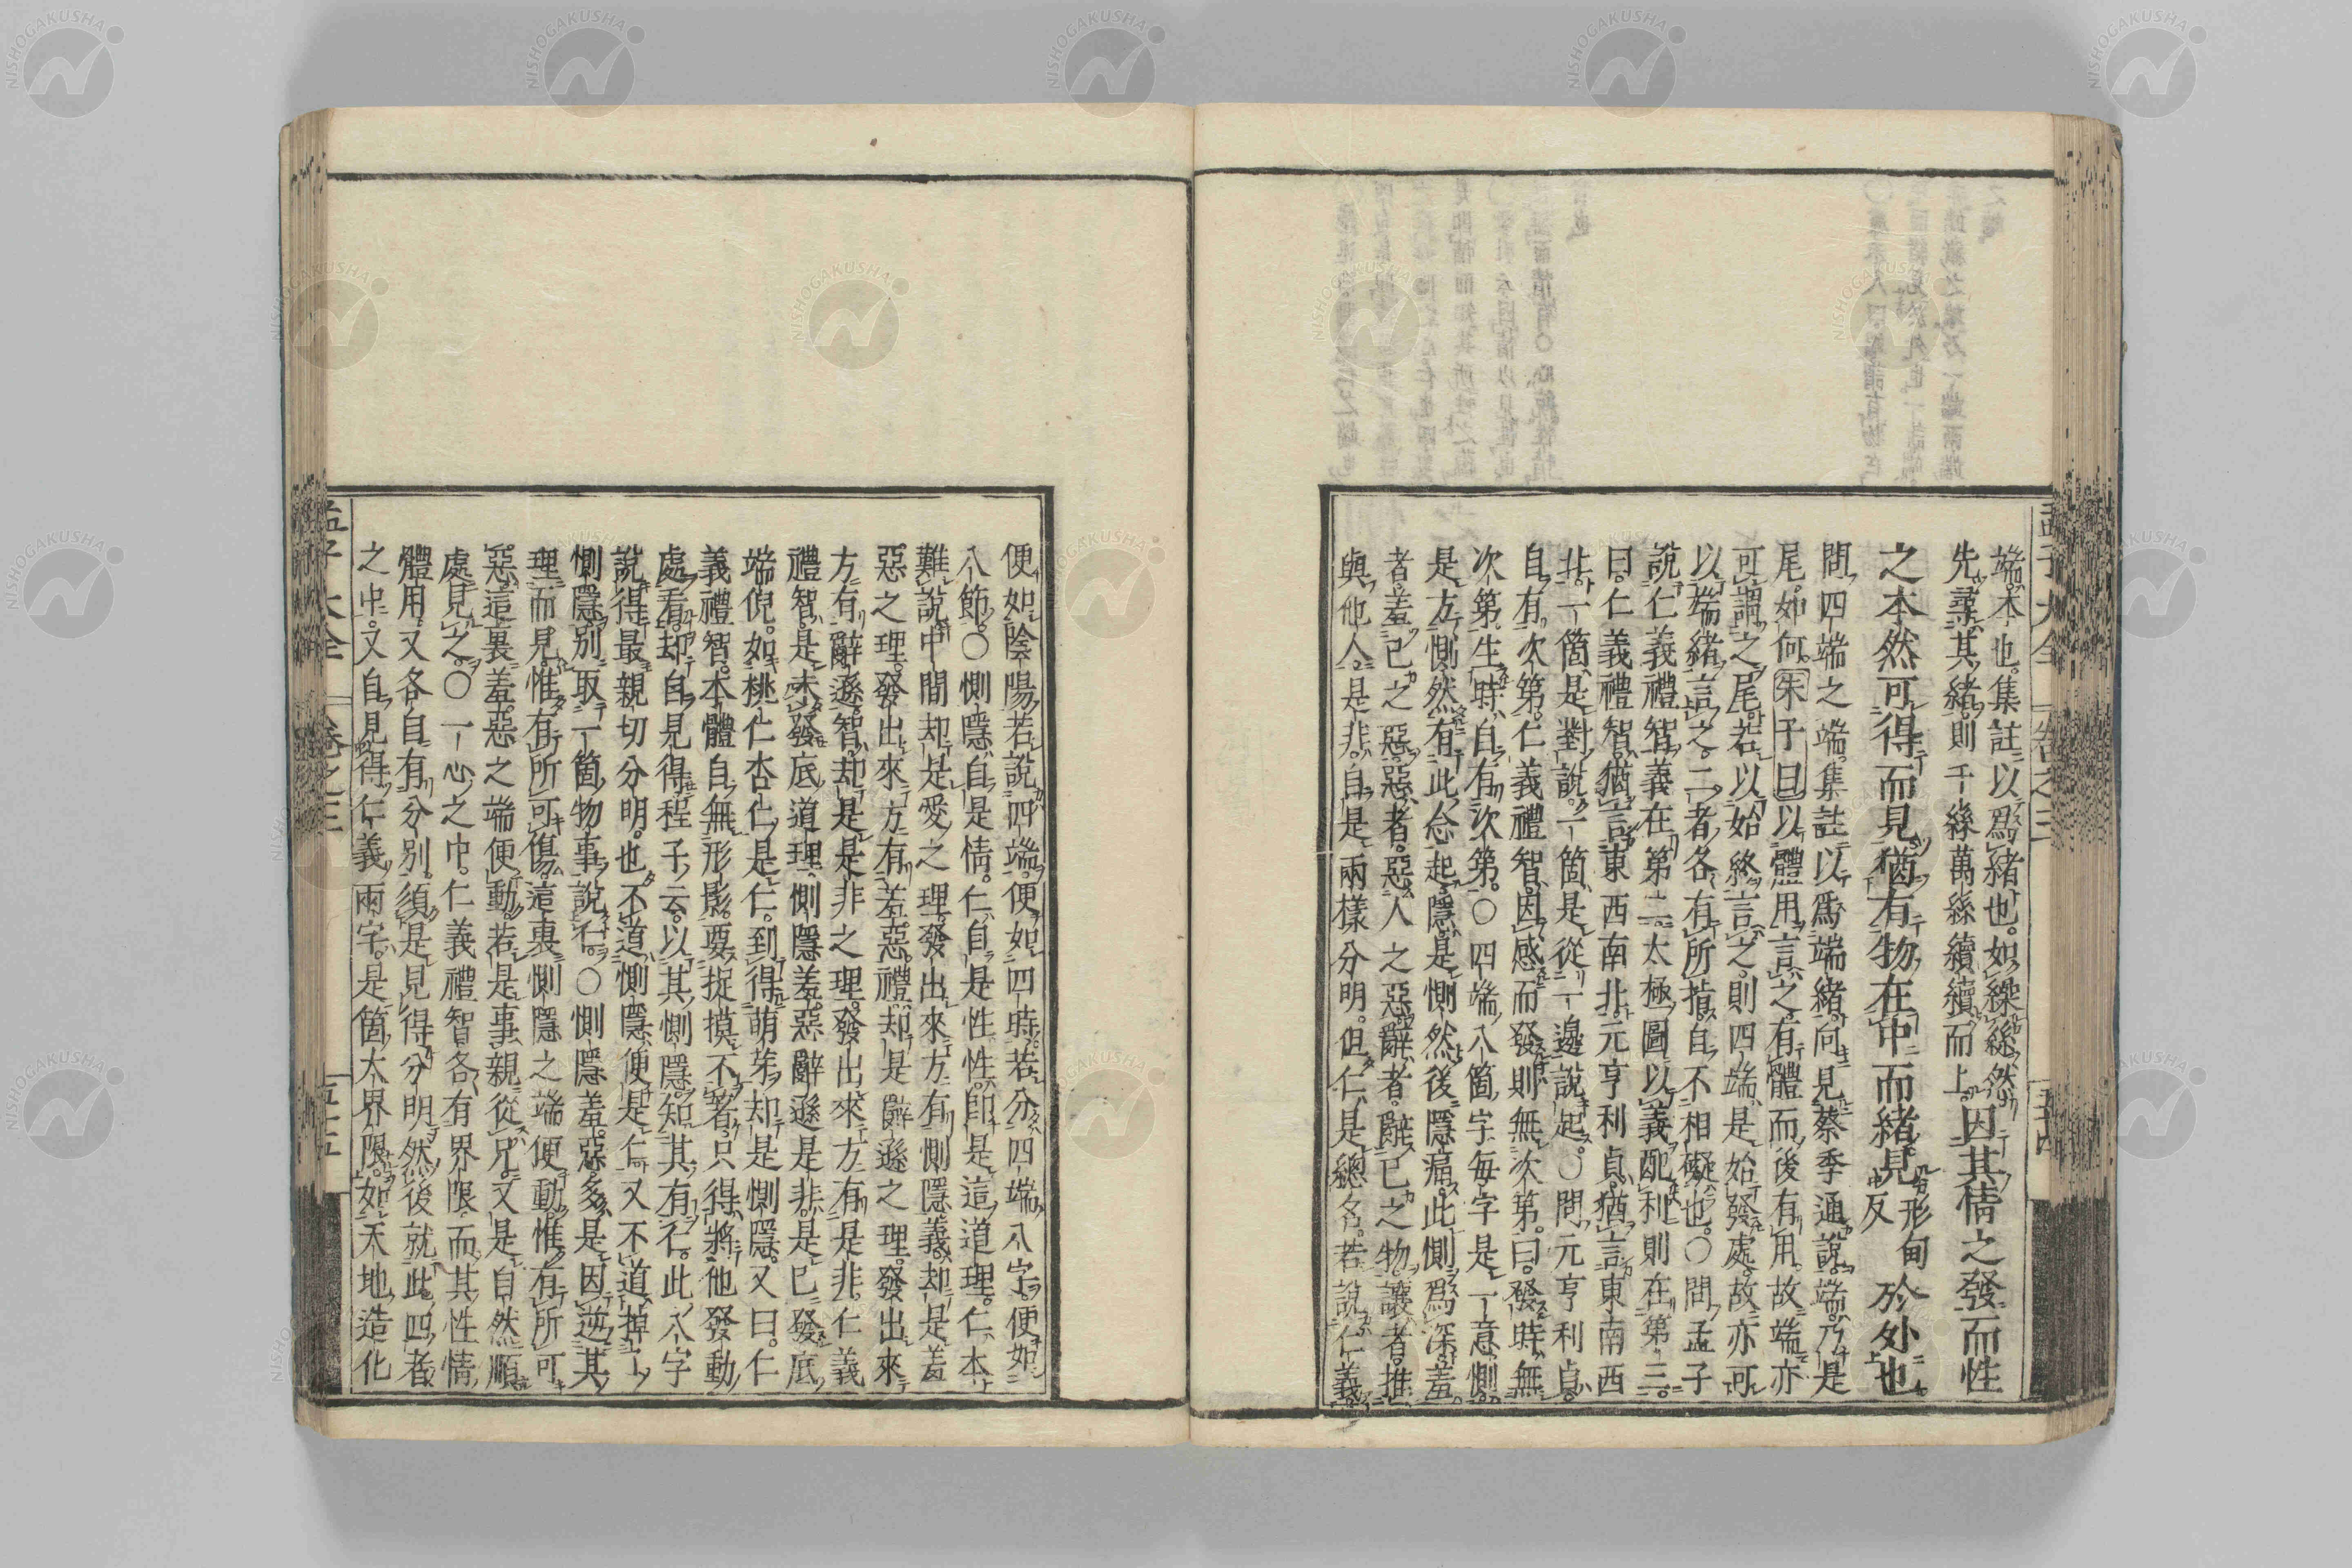 孟子大全 卷之三 五十四
端本也。集註以爲緒也。如繰絲然
先尋其緒。則千絲萬絲續續而上。
因其情之發而性
之本然可得而見。猶有物在中而緒見形甸反於外也
問。四端之端。集註以爲端緒。向見蔡季通說。端乃是
尾。如何。朱子曰以體用言之。有體而後有用。故端亦
可謂之尾。若以始終言之。則四端是始發處。故亦可
以端緒言之。二者各有所指。自不相礙也。○問孟子
說仁義禮智義在第二。太極圖以義配利則在第三。
曰。仁義禮智。猶言東西南北。元亨利貞。猶言東南西
北。一箇是對說。一箇是從一邊說起。○問元亨利貞。
自有次第。仁義禮智。因感而發則無次第。曰。發時無
次第。生時自有次第。○四端八箇字每字是一意。惻
是方惻然有此念起。隱是惻然後隱痛。此惻爲深。羞
者。羞己之惡。惡者。惡人之惡。辭者。辭己之物。讓者。推
與他人。是非。自是兩樣分明。但仁是總名。若說仁義
便如陰陽。若說四端。便如四時。若分四端八字。便如
八節。○惻隱自是情。仁自是性。性即是這道理。仁本
難說。中間却是愛之理。發出來方有惻隱。義却是羞
惡之理。發出來。方有羞惡。禮却是辭遜之理。發出來
方有辭遜。智却是是非之理。發出來方有是非。仁義
禮智。是未發底道理。惻隱羞惡辭遜是非。是已發底
端倪。如桃仁杏仁是仁。到得萌芽却是惻隱。又曰。仁
義禮智。本體自無形影。要捉摸不著。只得將他發動
處看。却自見得。程子云。以其惻隱。知其有仁。此八字
說得最親切分明。也不道惻隱便是仁。又不道掉了
惻隱。別取一箇物事說仁。○惻隱羞惡。多是因逆其
理而見。惟有所可傷。這裏惻隱之端便動。惟有所可
惡。這裏羞惡之端便動。若是事親從兄。又是自然順
處見之。○一心之中。仁義禮智各有界限。而其性情
體用。又各自有分別。須是見得分明。然後就此四者
之中。又自見得仁義兩字。是箇大界限。如天地造化
孟子大全 卷之三 五十五
NISHOGAKUSHA